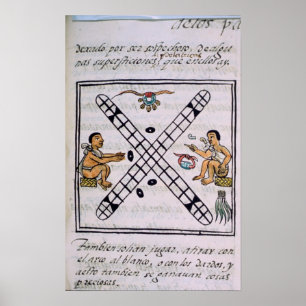 dexado por ser sospechoso, de algu
nas supersticiones, que en el ay.
Tambien solian jugar, a tirar con
el arco al blanco, o con los dardos, y
a esto tambien se ganauan cosas
preciosas.